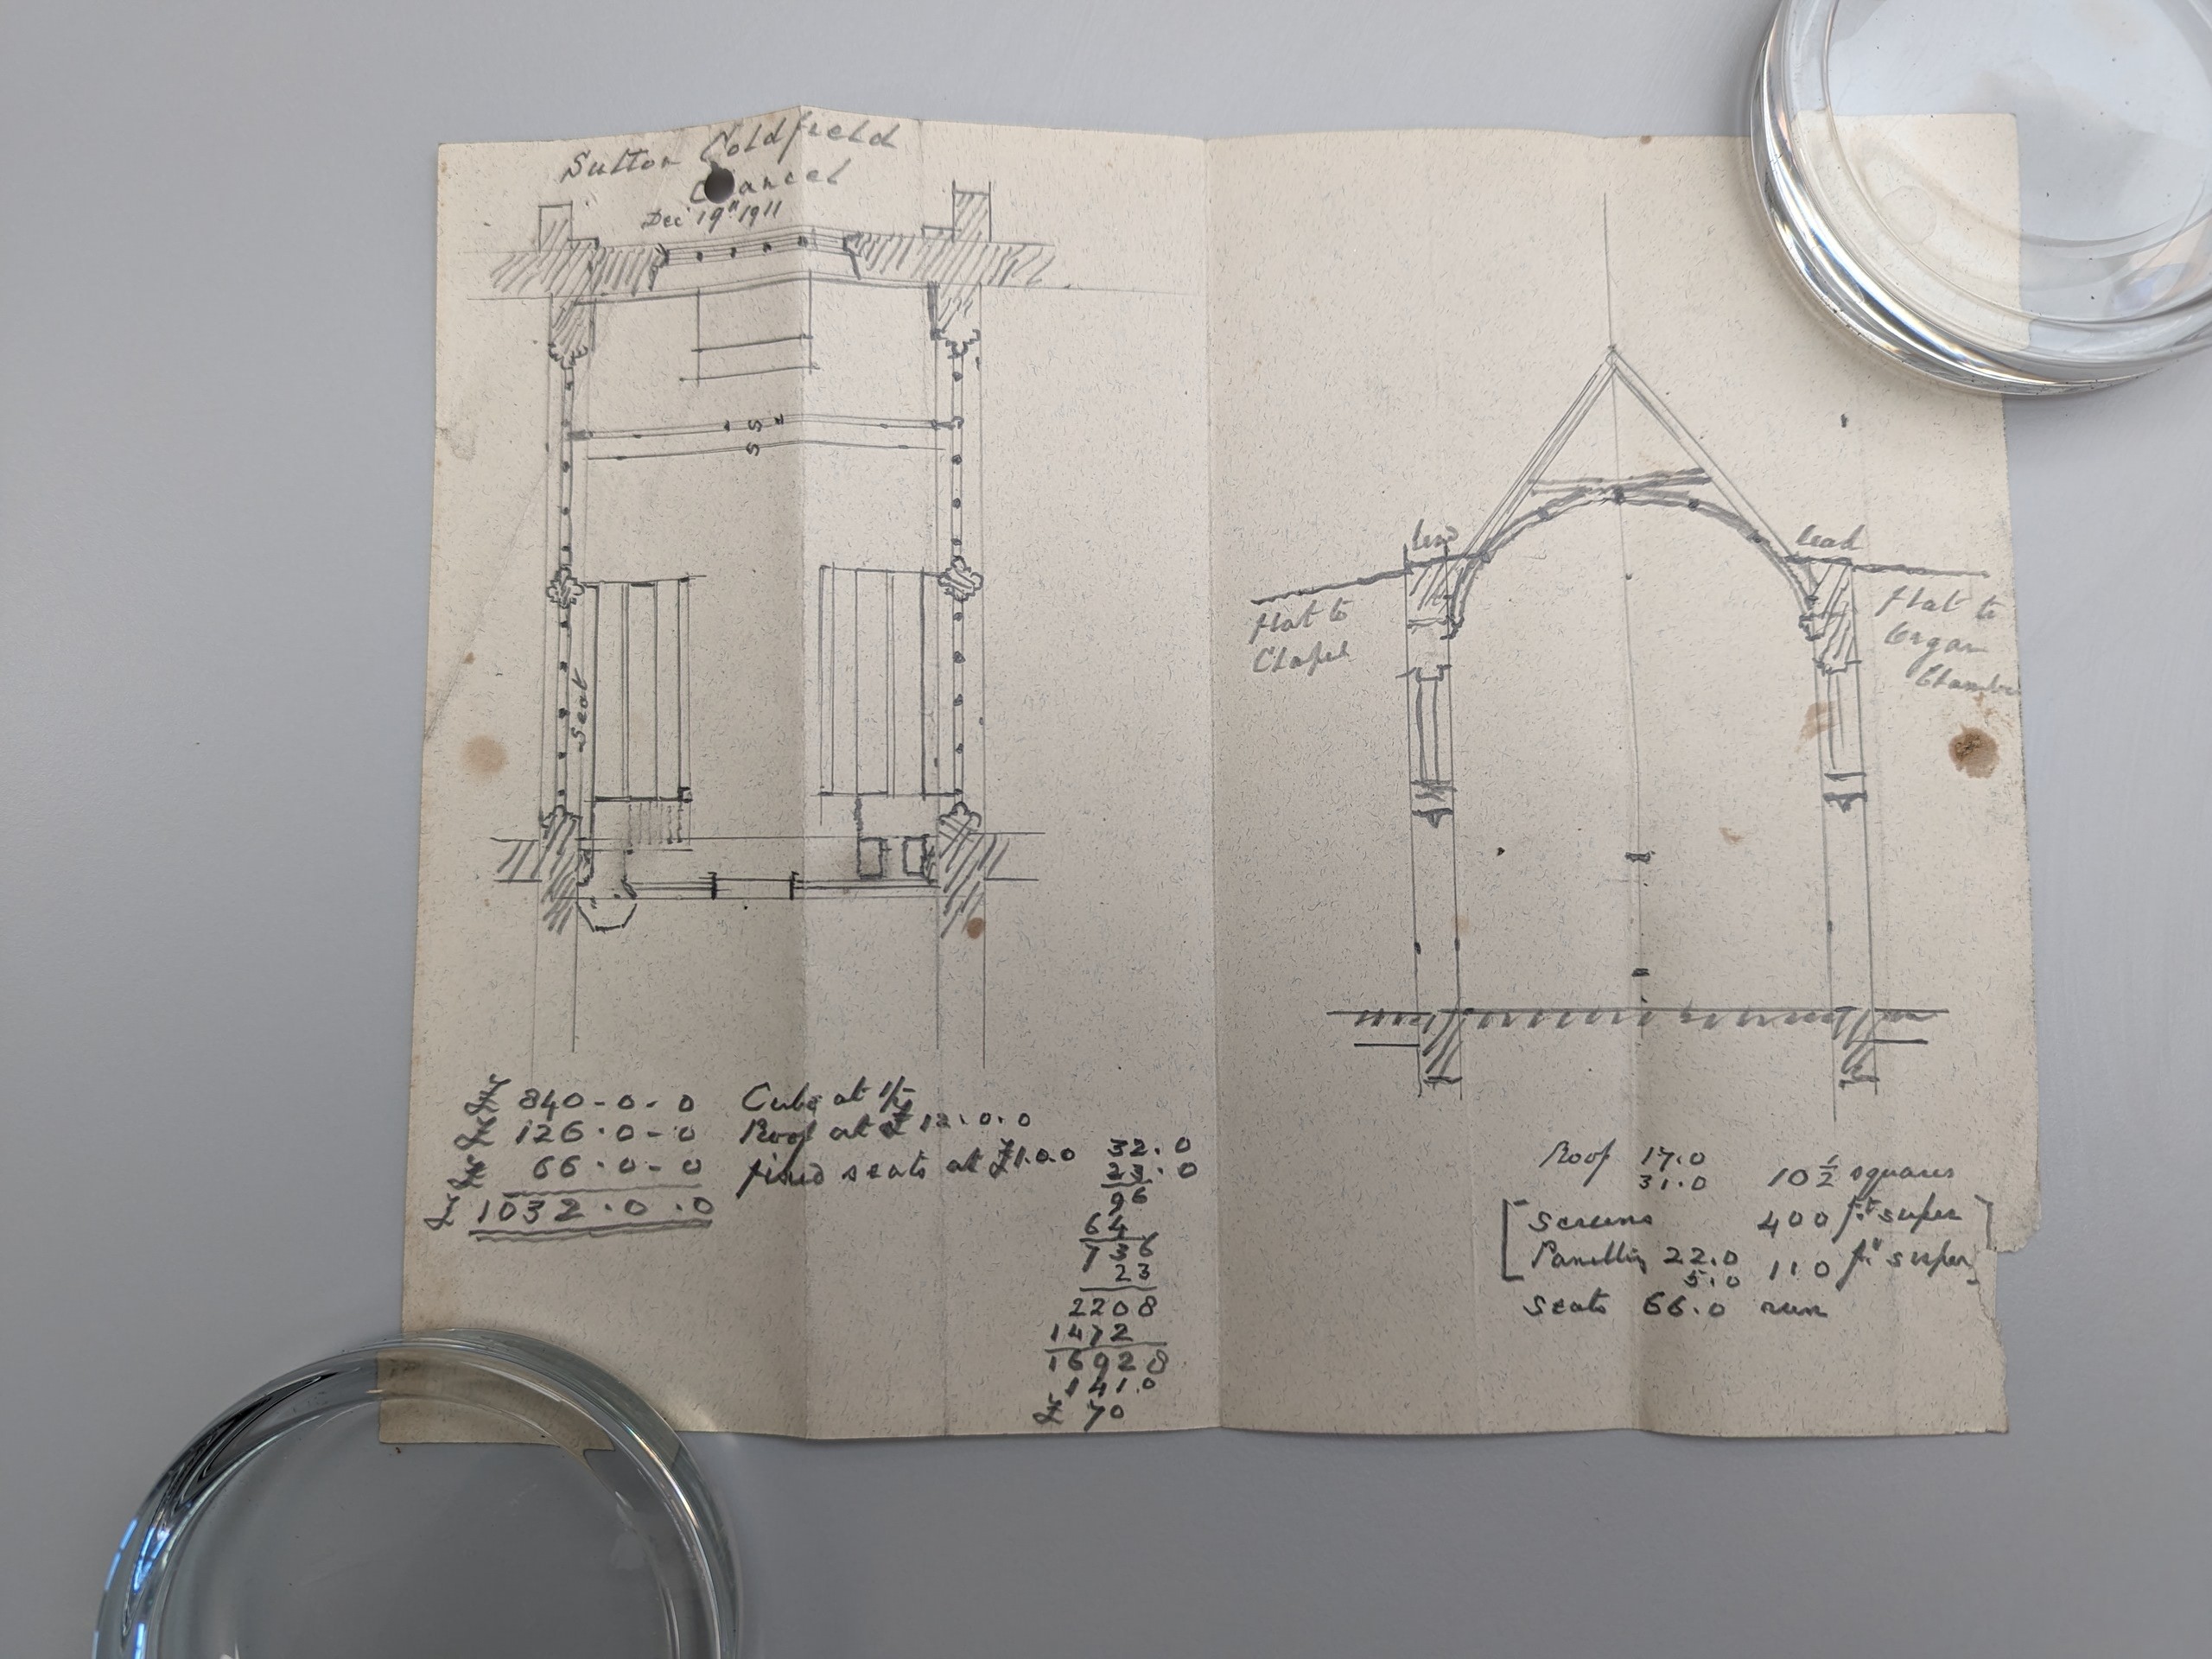 Sutton Coldfield
Chancel
Dec 19" 1911
seat
£ 840-0-0 Cube at 1/-
£ 126.0-0 Roof at £12.0.0
£ 66.0-0 fixed seats at £1.0.0
£ 1032.0.0
32.0
23.0
96
64
736
23
2208
1472
16928
141.0
£ 70
lead
lead
flat to
Chapel
flat to
Organ
Chamber
Roof 17.0
31.0 10 1/2 squares
[Screens 400 ft super]
[Panelling 22.0
5.0 110 ft super]
Seats 66.0 run